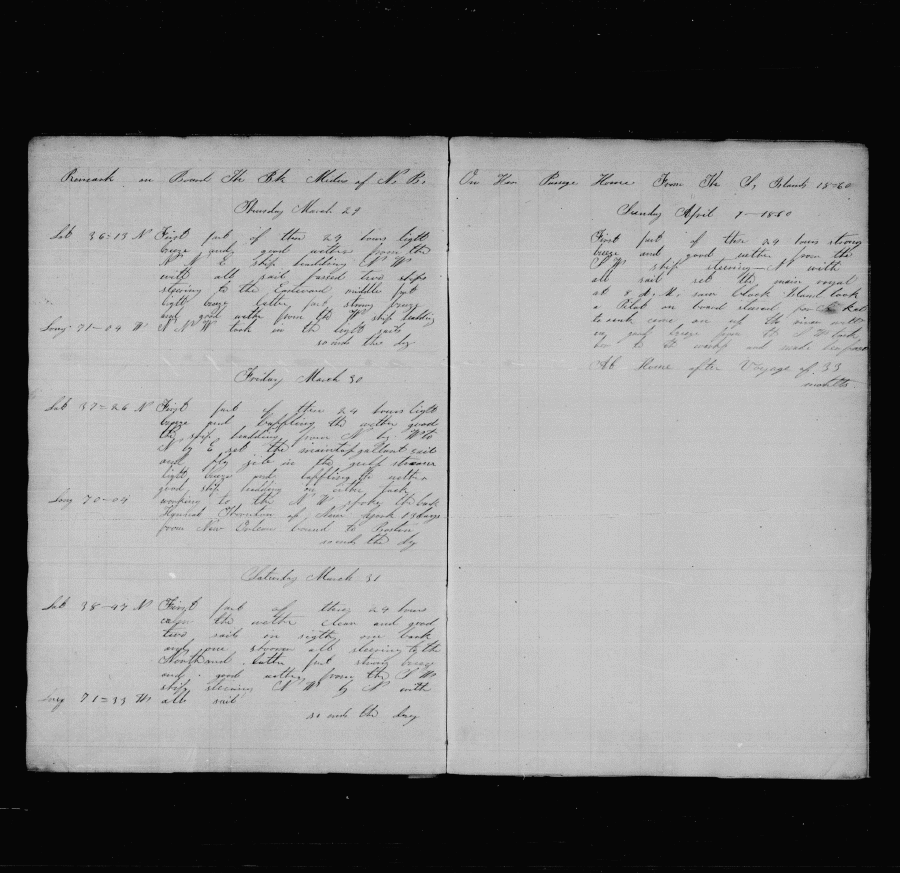 Remark on Board The Bk Midas of N. B.
Thursday March 29
Lat 36=13 N First part of these 24 hours light
breze and good wether from the
N N E ship heading N W
with all sail passed two ships
stering to the Eastward middle part
light breze latter part strong breze
and good wether from the W ship heading
Long 71-04 W N N W took in the light sails
so ends this day
Friday March 30
Lat 37=26 N First part of these 24 hours light
breze and baffling the wether good
the ship heading from N by W to
N by E set the maintopgallant sail
and fly jib in the gulf stream
light breze and baffling wether
good ship heading on either tack
Long 70-04 working to the N W spoke the bark
of New York 13 days
from New Orlean bound to Boston
so ends the dy
Saturday March 31
Lat 38-47 N First part of these 24 hours
calm the wether clear and good
two sail in sigth one bark
and one all steering to the
Northard latter part strong breze
and good wether from the S W
ship steering N W by N with
Long 71=33 W all sail
so ends the day
On Her Passage Home From The S, Islands 1860
Sunday April 1-1860
First part of these 24 hours strong
breze and good wether from the
S W ship steering N with
all sail set the main royal
at 8 A. M. saw Block Island took
a Pilot on board
come up the river with
a good breze from the S W
and made
At Home after Voyage of 33
months